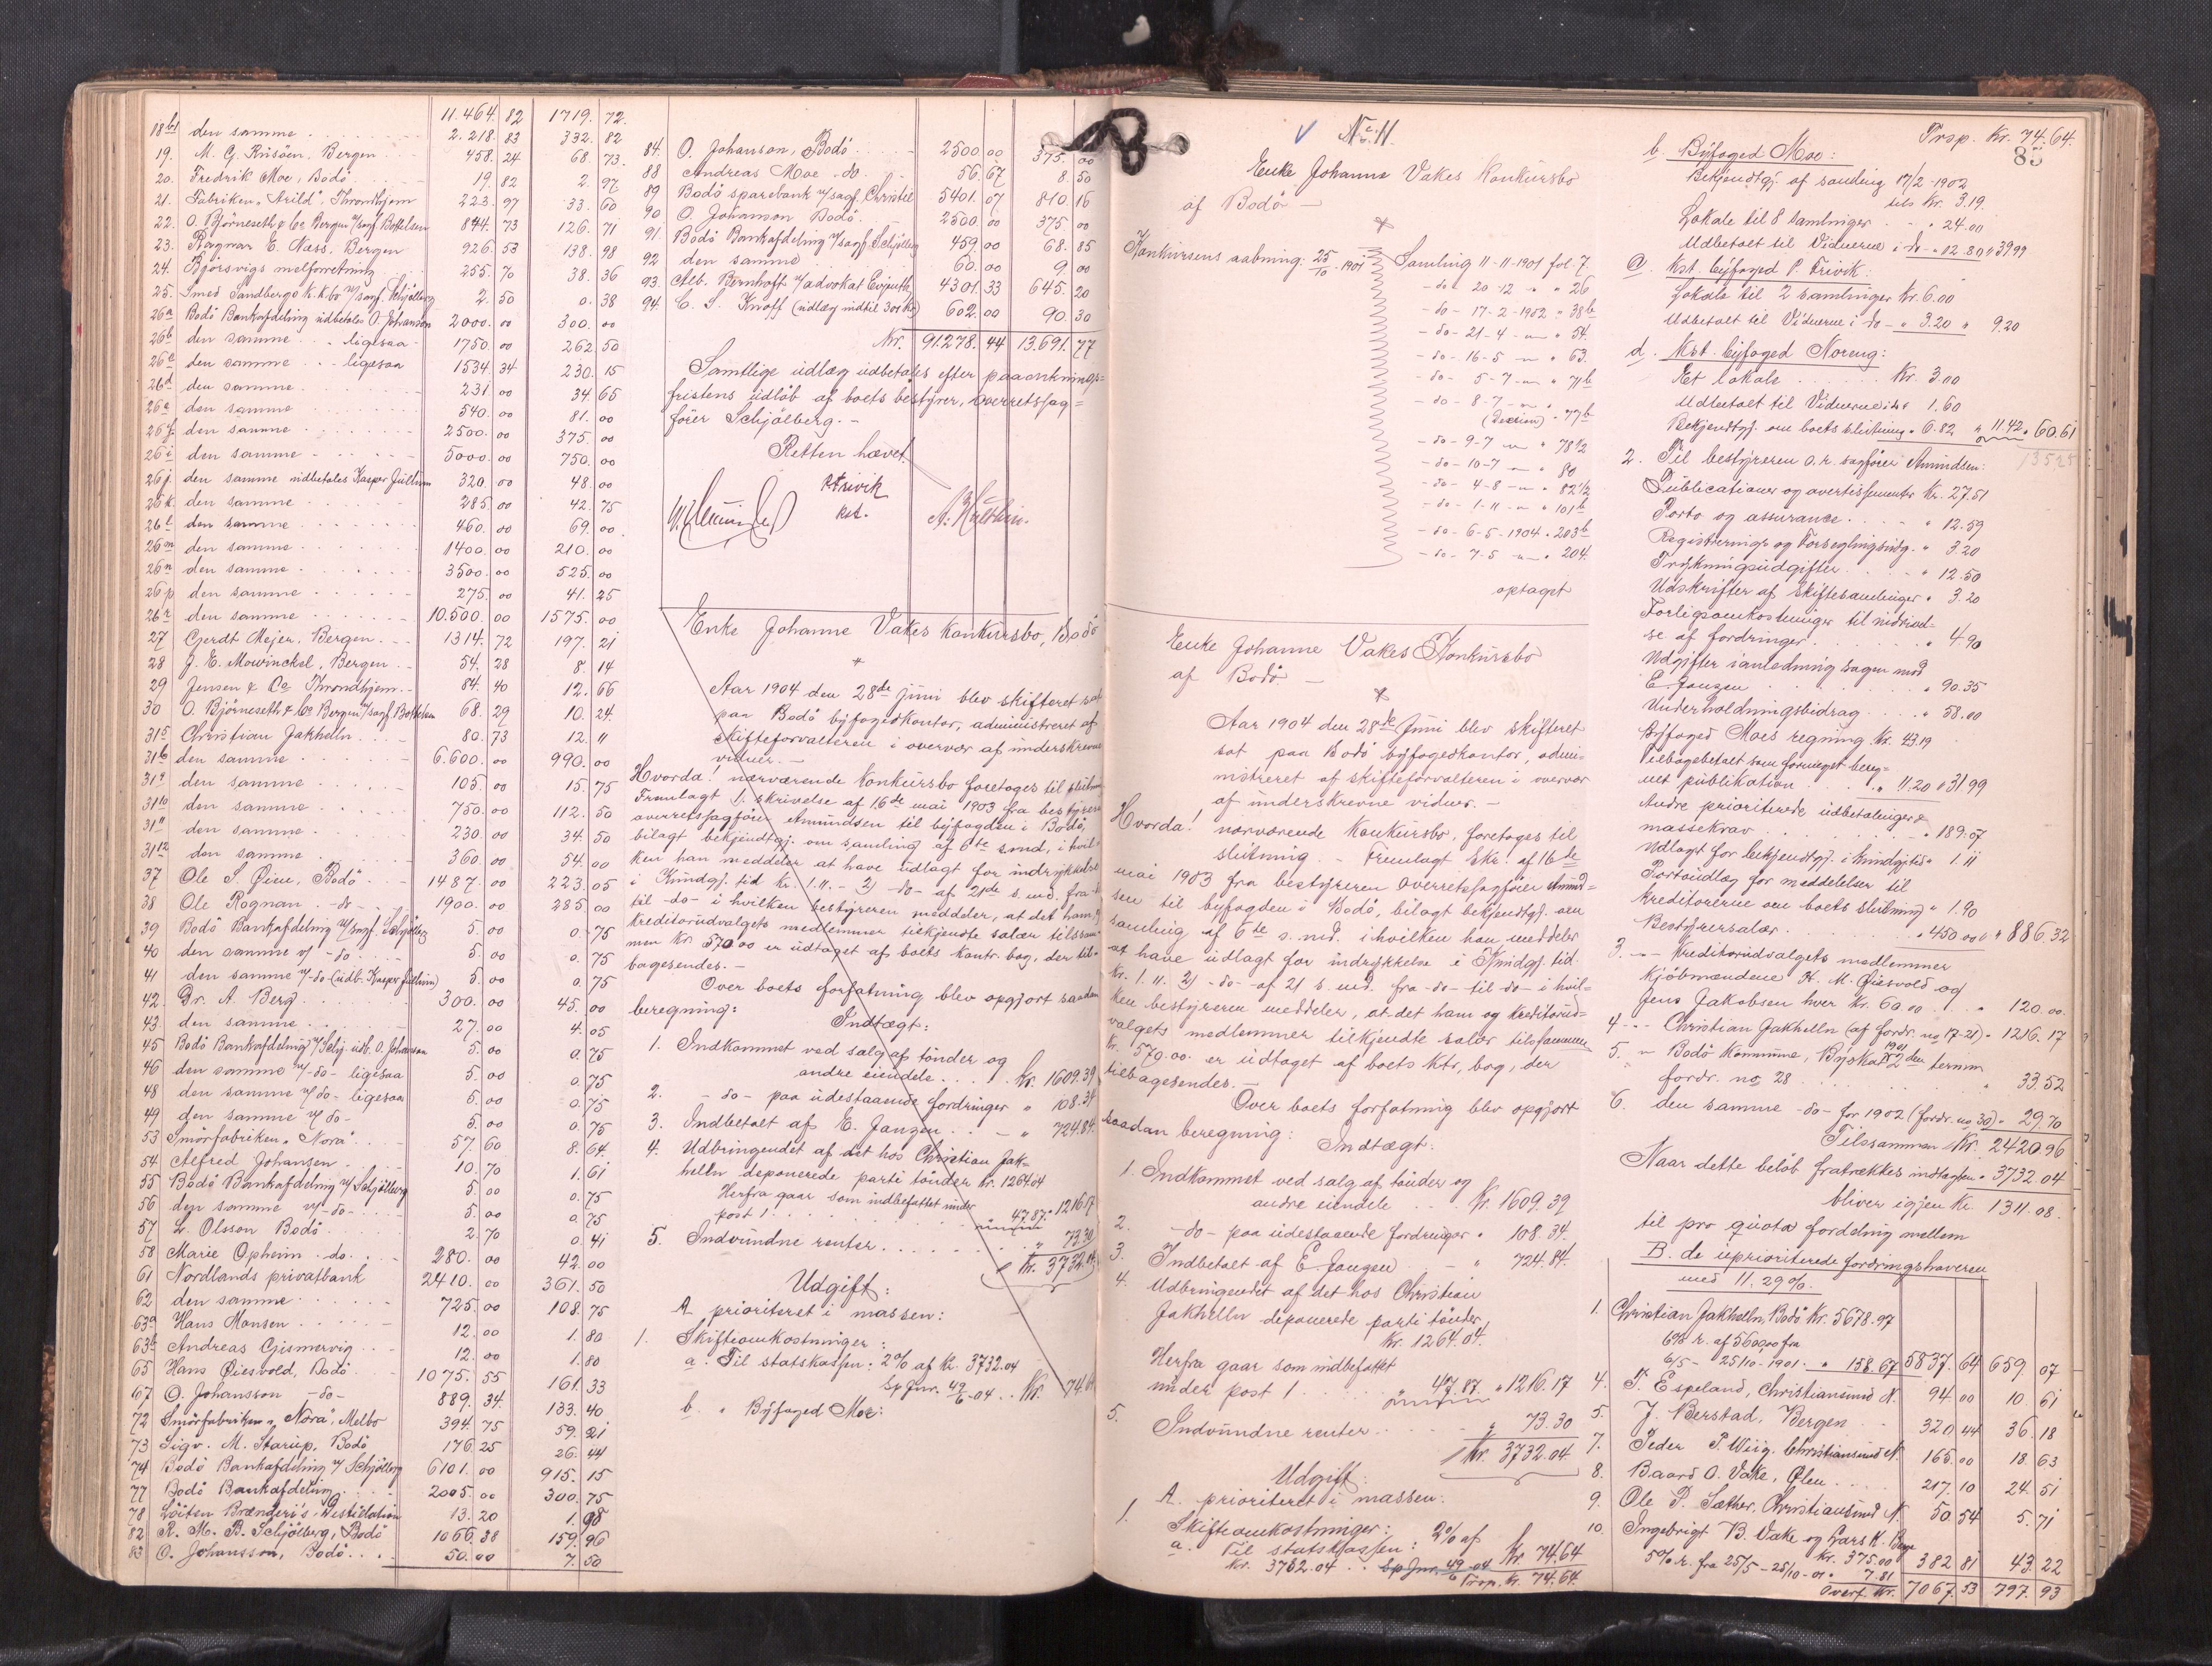 11.464. 82 1719. 72.
18b1 den samme 2.218. 83 332. 82
19. M. G. Krüsöen, Bergen 458. 24 68. 73.
20. Fredrik Moe, Bodö 19. 82 2. 97
21. Fabriken "Arild", Throndhjem 223. 97 33. 60
22. O. Björneseth & Co Bergen v/sagf. Bottelsen 844. 73 126. 71
23. Ragnar E. Næss, Bergen 926. 53 138. 98
24. Björsvigs melforretning 255. 70 38. 36
25. Smed Sandbergs k.k.bo v/sagf. Schjölberg 2. 50 0. 38
26a Bodö Bankafdeling udbetales O. Johanson 2000. 00 300. 00
26b den samme " ligesaa 1750. 00 262. 50
26c den samme ligesaa 1534. 34 230. 15
26d den samme 231. 00 34. 65
26e den samme 540. 00 81. 00
26f den samme 2500. 00 375. 00
26i den samme 5000. 00 750. 00
26j. den samme udbetales Kasper Jullum 320. 00 48. 00
26k den samme 285. 00 42. 75
26l den samme 460. 00 69. 00
26m den samme 1400. 00 210. 00
26n den samme 3500. 00 525. 00
26p den samme 275. 00 41. 25
26r den samme 10.500. 00 1575. 00
27 Gerdt Mejer, Bergen 1314. 72 197. 21
28 J. E. Mowinckel, Bergen 54. 28 8. 14
29 Jensen & Co Throndhjem 84. 40 12. 66
30 O. Björneseth & Co Bergen v/sagf. Bottelsen 68. 29 10. 24.
315 Christian Jakhelln 80. 73 12. 11
316 den samme 6.600. 00 990. 00
319 den samme 105. 00 15. 75
3110 den samme 750. 00 112. 50
3111 den samme 230. 00 34. 50
3112 den samme 360. 00 54. 00
37 Ole S. Øien, Bodö 1487. 00 223. 05
38 Ole Rognan -do- 1900. 00 285. 00
39 Bodö Bankafdeling v/sagf. Schjölberg 5. 00 0. 75
40 den samme v/ -do- 5. 00 0. 75
41 den samme v/-do- (udb. Kasper Jullum) 5. 00 0. 75
42. Dr. A. Berg 300. 00 45. 00
43 den samme 27. 00 4. 05
45 Bodö Bankafdeling v/Schj. udb. O. Johanson 5. 00 0. 75
46 den samme v/-do- ligesaa 5. 00 0. 75
48 den samme v/ do- ligesaa 5. 00 0. 75
49 den samme v/ do- 5. 00 0. 75
53 Smörfabriken "Nora" 57. 60 8. 64
54. Alfred Johansen 10. 70 1. 61
55 Bodö Bankafdeling v/ Schjölberg 5. 00 0. 75
56 den samme v/-do- 5. 00 0. 75
57 L. Olsson Bodö 2. 70 0. 41
58 Marie Opheim -do- 280. 00 42. 00
61 Nordlands privatbank 2410. 00 361. 50
62 den samme 725. 00 108. 75
63a Hans Monsen 12. 00 1. 80
63b Andreas Gjsmervig 12. 00 1. 80
65 Hans Øiesvold, Bodö 1075. 55 161. 33
67 O. Johansson -do- 889. 34. 133. 40
72 Smörfabriken "Nora", Melbo 394. 75 59. 21
73 Sigv. M. Starup, Bodö 176. 25 26. 44
74 Bodö Bankafdeling v/ Schjölberg 6101. 00 915. 15
77 Bodö Bankafdeling 2005. 00 300. 75
78 Löiten Brænderi's Destillation 13. 20 1. 98
82 R. M. B. Schjölberg, Bodö 1066. 38 159. 96
83 O. Johansson, Bodö 50. 00 7. 50
84. O. Johanson, Bodö 2500. 00 375. 00
88 Andreas Moe -do- 56. 67 8. 50
89 Bodö sparebank v/sagf. Christil 5401. 07 810. 16
90 O. Johanson Bodö 2500. 00 375. 00
91. Bodö Bankafdeling v/sagf. Schjölberg 459. 00 68. 85
92 den samme 60. 00 9. 00
93. Alb. Bernhoft v/advokat Evjenth 4301. 33 645. 20
94. C. S. Knoff (udlæg indtil 300 Kr) 602. 00 90. 30
Kr. 91.278. 44 13.691. 77
Samtlige udlæg udbetales efter paaanknings=
fristens udlöb af boets bestyrer, overretssag=
förer Schjölberg. -
Retten hævet.
P. Trivik
kst.
Enke Johanne Vakes Konkursbo, Bodö
Aar 1904 den 28de juni blev skifteret sat
paa Bodö byfogedkontor, administreret af
skifteforvalteren i overvær af underskrevne
vidner. -
Hvorda! nærværende Konkursbo foretages til slutning
Fremlagt 1. skrivelse af 16de mai 1903 fra bestyreren
overretssagförer Amundsen til byfogden i Bodö,
bilagt bekjendtgj. om samling af 6te s.md., i hvil=
ken han meddeler at have udlagt for indrykkelse
i Kundgj. tid Kr. 1.11. - 2) -do- af 21de s. md. fra -do-
til -do- i hvilken bestyreren meddeler, at det ham og
kreditorudvalgets medlemmer tilkjendte salær tilsam=
men Kr 570.00 er udtaget af boets kontr. bog, der til=
bagesendes. -
Over boets forfatning blev opgjort saadan
beregning:
Indtægt:
1. Indkommet ved salg af tönder og
andre eiendele Kr. 1609.39
2. - do - paa udestaaende fordringer " 108.34
3. Indbetalt af E. Jangen " 724.84.
4. Udbringendet af det hos Christian Jak=
helln deponerede parti tönder Kr. 1264.04
Herfra gaar som indbefattet under
post 1 47.87. " 1216.17
5. Indvundne renter " 73.30
Kr. 3732.04
Udgift:
A. prioriteret i massen:
1. Skifteomkostninger:
a. Til statskassen: 2% af Kr. 3732.04
Sp Jnr. 49/6-04 Kr. 74.64
b. " Byfoged Moe:
No 11.
Enke Johanne Vakes Konkursbo
af Bodö -
Konkursens aabning: 25/10-1901
Samling 11-11-1901 fol 7.
-do- 20-12 - " " 26
-do- 17-2-1902 " 38b
-do- 21-4 - " " 54.
-do- 16-5 - " " 63.
-do- 5-7 - " " 71b
-do- 8-7 - " "
(Decision) " 77b
-do- 9-7 " " 78½
-do- 10-7 " " 80
-do- 4-8 - " " 82½
-do- 1-11 - " " 101b
-do- 6-5-1904 " 203b
-do- 7-5 - " " 204.
optaget
Enke Johanne Vakes Konkursbo
af Bodö -
Aar 1904 den 28de Juni blev skifteret
sat paa Bodö byfogedkontor, admi=
nistreret af skifteforvalteren i overvær
af underskrevne vidner. -
Hvorda! nærværende Konkursbo, foretages til
slutning. - Fremlagt Skr. af 16de
mai 1903 fra bestyreren overretssagförer Amund=
sen til byfogden i Bodö, bilagt bekjendtgj. om
samling af 6te s. md. i hvilken han meddeler
at have udlagt for indrykkelse i Kundgj. tid.
Kr. 1.11. 2) -do- af 21 s. md. fra -do- til -do- i hvil=
ken bestyreren meddeler, at det ham og Kreditorud=
valgets medlemmer tilkjendte salær tilsammen
Kr. 570.00. er udtaget af boets ktr, bog, der
tilbagesendes. -
Over boets forfatning blev opgjort
saadan beregning:
Indtægt:
1. Indkommet ved salg af tönder og
andre eiendele Kr. 1609.39
2. -do- paa udestaaende fordringer " 108.34.
3. Indbetalt af E. Jangen " 724.84.
4. Udbringendet af det hos Christian
Jakhelln deponerede parti tönder
Kr. 1264.04.
Herfra gaar som indbefattet
under post 1 " 47.87. " 1216.17
5. Indvundne renter " 73.30
Kr. 3732.04.
Udgift:
A. prioriteret i massen:
1. Skifteomkostninger:
a. Til statskassen: 2% af
Kr. 3732.04 Sp Jnr. 49/6-04 Kr 74.64
Trsp. Kr. 74.64.
Trsp. Kr. 74.64.
85
b. Byfoged Moe:
Bekjendtgj. af samling 17/2-1902
tils Kr. 3.19.
Lokale til 8 samlinger " 24.00
Udbetalt til Vidnerne i -do- " 12.80 " 39.99
c. Kst. byfoged P. Trivik:
Lokale til 2 samlinger Kr. 6.00
Udbetalt til Vidnerne i do - " 3.20 " 9.20
d. Kst. byfoged Noreng:
Et lokale Kr. 3.00
Udbetalt til Vidnerne i do " 1.60
Bekjendtgj. om boets slutning " 6.82 " 11.42 " 60.61
2. Til bestyreren o.r. sagförer Amundsen:
Publicationer og avertissementer Kr. 27.51
Porto og assurance " 12.59
Registrerings og Forseglingsudg. " 3.20
Trykningsudgifter " 12.50
Udskrifter af Skiftesamlinger " 3.20
Forligsomkostninger til inddriv=
else af fordringer " 4.90
Udgifter i anledning sagen mod
E. Jangen " 90.35
Underholdningsbidrag " 58.00
Byfoged Moes regning Kr. 43.19
Tilbagebetalt som formeget bereg=
net publikation " 11.20 " 31.99
Andre prioriterede udbetalinger &
massekrav " 189.07
Udlagt for bekjendtgj. i Kundgjtid " 1.11
Portoudlæg for meddelelser til
kreditorerne om boets slutning " 1.90
Bestyrersalær " 450.00 " 886.32
3. -"- Kreditorudvalgets medlemmer
Kjöbmændene H. M. Øiesvold og
Jens Jakobsen hver Kr. 60.00 " 120.00.
4 -"- Christian Jakhelln (af fordr. no 17-21) " 1216.17
5. " Bodö Kommune, Byskat 1901 2den termin
fordr. no 28 " 33.52
6. den samme -do- for 1902 (fordr. no 30) " 29.70
Tilsammen Kr. 2420.96
Naar dette belöb fratrækkes indtægten " 3732.04
bliver igjen Kr. 1311.08.
til pro qvota fordeling mellem
B. de uprioriterede fordringshavere
med 11.29%.
1. Christian Jakhelln, Bodö Kr. 5678.97
6% r. af 5600.00 fra
6/5 - 25/10-1901 " 158.67 5837. 64 659. 07
4. P. Espeland, Christiansund N. 94. 00 10. 61
5. J. Berstad, Bergen 320. 44 36. 18
7. Peder P. Wiig. Christiansund N. 165. 00 18. 63
8. Baard O. Vake, Ølen 217. 10 24. 51
9. Ole P. Sæther, Christiansund N. 50. 54 5. 71
10. Ingebrigt B. Vake og Lars K.
Kr. 375.00
5% r. fra 25/5 - 25/10-01 " 7.81 382. 81 43. 22
Overf. Kr. 7067. 53 797. 93